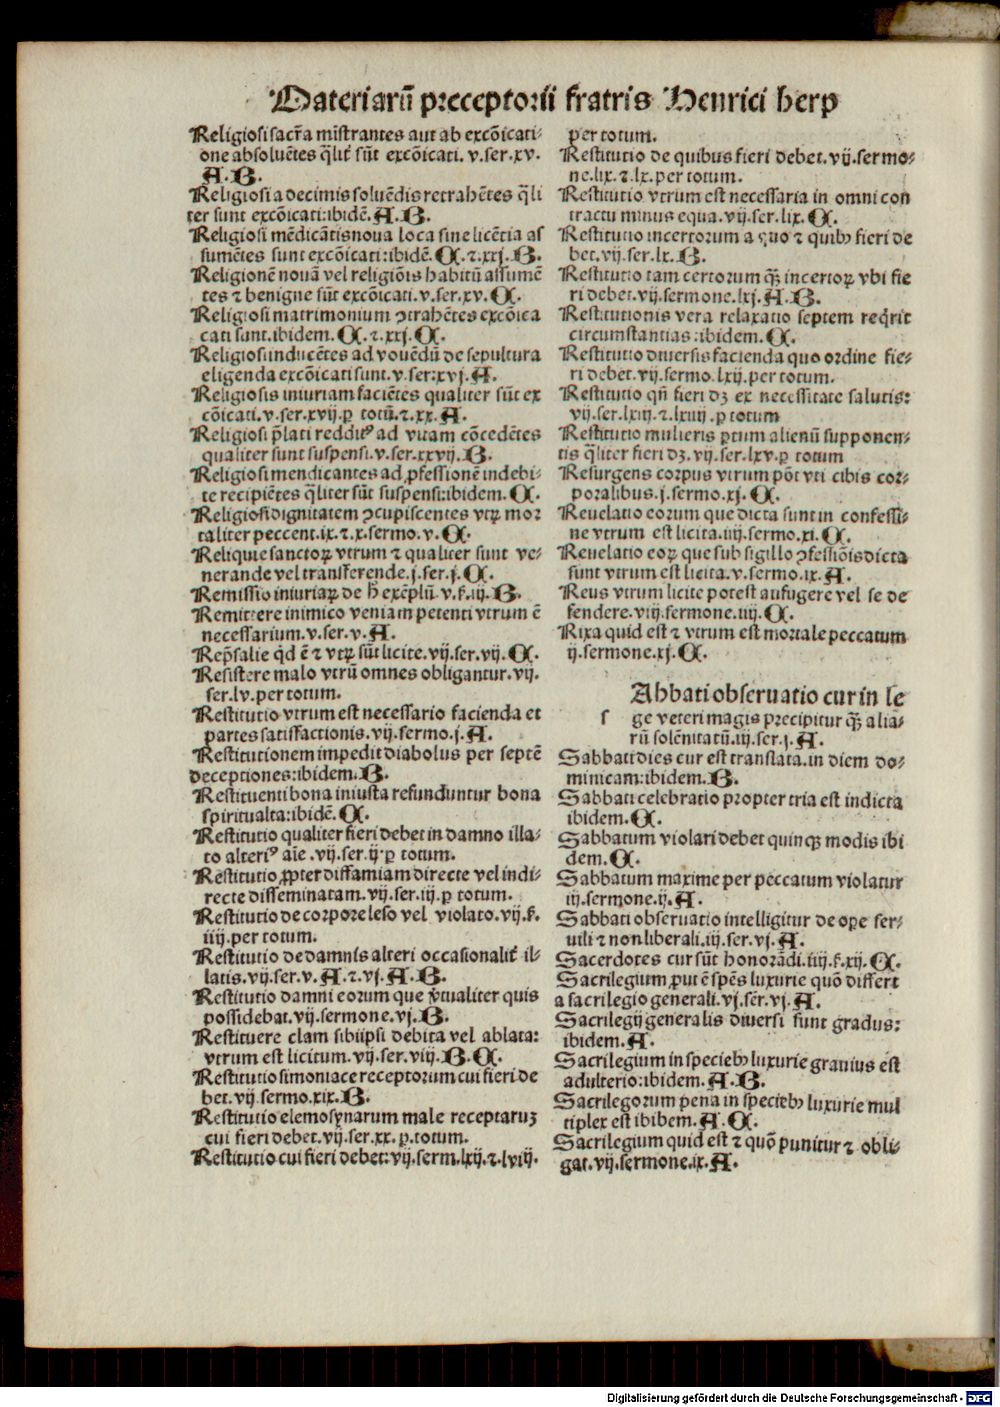 Materiarū preceptorii fratris Henrici herp
Religiosi sacr̄a mīstrantes aut ab excōicati⸗
one absoluētes q̄lit̛ sūt excōicati. v. ser. xv.
A. B.
Religiosi a decimis soluēdis retrahētes q̄li
ter sunt excōicati: ibidē. A. B.
Religiosi mēdicātis noua loca sine licētia as
sumētes sunt excōicati: ibidē. C. ⁊. xxj. B.
Religionē nouā vel religiōis habitū assumē
tes ⁊ benigne sūt excōicati. v. ser. xv. C.
Religiosi matrimonium ꝯtrahētes excōica
cati sunt. ibidem. C. ⁊. xxj. C.
Religiosi inducētes ad vouēdū de sepultura
eligenda excōicati sunt. v. ser: xvj. A.
Religiosis iniuriam faciētes qualiter sūt ex
cōicati. v. ser. xvij. ꝑ totū. ⁊. xx. A.
Religiosi p̄lati redditꝰ ad vitam cōcedētes
qualiter sunt suspensi. v. ser. xxvij. B.
Religiosi mendicantes ad ꝓfessionē indebi⸗
te recipiētes q̄liter sūt suspensi: ibidem. C.
Religiosi dignitatem ꝯcupiscentes vtꝝ mor
taliter peccent. ix. ⁊. x. sermo. v. C.
Reliquie sanctoꝝ vtrum ⁊ qualiter sunt ve⸗
nerande vel transferende. j. ser. j. C.
Remissio iniuriaꝝ de h̄ exēplū. v. s̄. iij. B.
Remittere inimico veniam petenti vtrum ē
necessarium. v. ser. v. A.
Rep̄salie qd̄ ē ⁊ vtꝝ sūt licite. vij. ser. vij. C.
Resistere malo vtrū omnes obligantur. vij.
ser. lv. per totum.
Restitutio vtrum est necessario facienda et
partes satisfactionis. vij. sermo. j. A.
Restitutionem impedit diabolus per septē
deceptiones: ibidem. B.
Restituenti bona iniusta refunduntur bona
spiritualta: ibidē. C.
Restitutio qualiter fieri debet in damno illa⸗
to alteriꝰ aīe. vij. ser. ij. ꝑ totum.
Restitutio ꝓpter diffamiam directe vel indi⸗
recte disseminatam. vij. ser. iij. ꝑ totum.
Restitutio de corpore leso vel violato. vij. s̄.
iiij. per totum.
Restitutio de damnis alteri occasionalit̛ il⸗
latis. vij. ser. v. A. ⁊. vj. A. B.
Restitutio damni eorum que v̓tualiter quis
possidebat. vij. sermone. vj. B.
Restituere clam sibiipsi debita vel ablata:
vtrum est licitum. vij. ser. viij. B. C.
Restitutio simoniace receptorum cui fieri de
bet. vij. sermo. xix. B.
Restitutio elemosynarum male receptaruʒ
cui fieri debet. vij. ser. xx. ꝑ. totum.
Restitutio cui fieri debet: vij. serm. lxij. ⁊. lviij.
per totum.
Restitutio de quibus fieri debet. vij. sermo⸗
ne. lix. ⁊. lx. per totum.
Restitutio vtrum est necessaria in omni con
tractu minus equa. vij. ser. lix. C.
Restitutio incertorum a quo ⁊ quibꝫ fieri de
bet. vij. ser. lx. B.
Restitutio tam certorum qꝫ incertoꝝ vbi fie
ri debet. vij. sermone. lxj. A. B.
Restitutionis vera relaxatio septem req̇rit
circumstantias: ibidem. C.
Restitutio diuersis facienda quo ordine fie⸗
ri debet. vij. sermo. lxij. per totum.
Restitutio qn̄ fieri dʒ ex necessitate salutis:
vij. ser. lxiij. ⁊. lxiiij. ꝑ totum
Restitutio mulieris ꝑtum alienū supponen⸗
tis q̄liter fieri dʒ. vij. ser. lxv. ꝑ totum
Resurgens corpus vtrum pōt vti cibis cor⸗
poralibus. j. sermo. xj. C.
Reuelatio eorum que dicta sunt in confessi⸗
ne vtrum est licita. iiij. sermo. xi. C.
Reuelatio eoꝝ que sub sigillo ꝯfessiōis dicta
sunt vtrum est licita. v. sermo. ix. A.
Reus vtrum licite potest aufugere vel se de
fendere. viij. sermone. iiij. C.
Rixa quid est ⁊ vtrum est mortale peccatum
ij. sermone. xj. C.
Abbati obseruatio cur in le
s ge veteri magis precipitur qꝫ alia⸗
rū solēnitatū. iij. ser. j. A.
Sabbati dies cur est translata. in diem do⸗
minicam: ibidem. B.
Sabbati celebratio propter tria est indicta
ibidem. C.
Sabbatum violari debet quinqꝫ modis ibi
dem. C.
Sabbatum maxime per peccatum violatur
iij. sermone. ij. A.
Sabbati obseruatio intelligitur de oꝑe ser⸗
uili ⁊ non liberali. iij. ser. vj. A.
Sacerdotes cur sūt honorādi. iiij. s̄. xij. C.
Sacrilegium ꝓut ē spēs luxurie quō differt
a sacrilegio generali. vj. ser̄. vj. A.
Sacrilegij generalis diuersi sunt gradus:
ibidem. A.
Sacrilegium in speciebꝫ luxurie grauius est
adulterio: ibidem. A. B.
Sacrilegorum pena in speciebꝫ luxurie mul
tiplex est ibibem. A. C.
Sacrilegium quid est ⁊ quō punitur ⁊ obli⸗
gat. vij. sermone. ix. A.
Digitalisierung gefördert durch die Deutsche Forschungsgemeinschaft - DFG